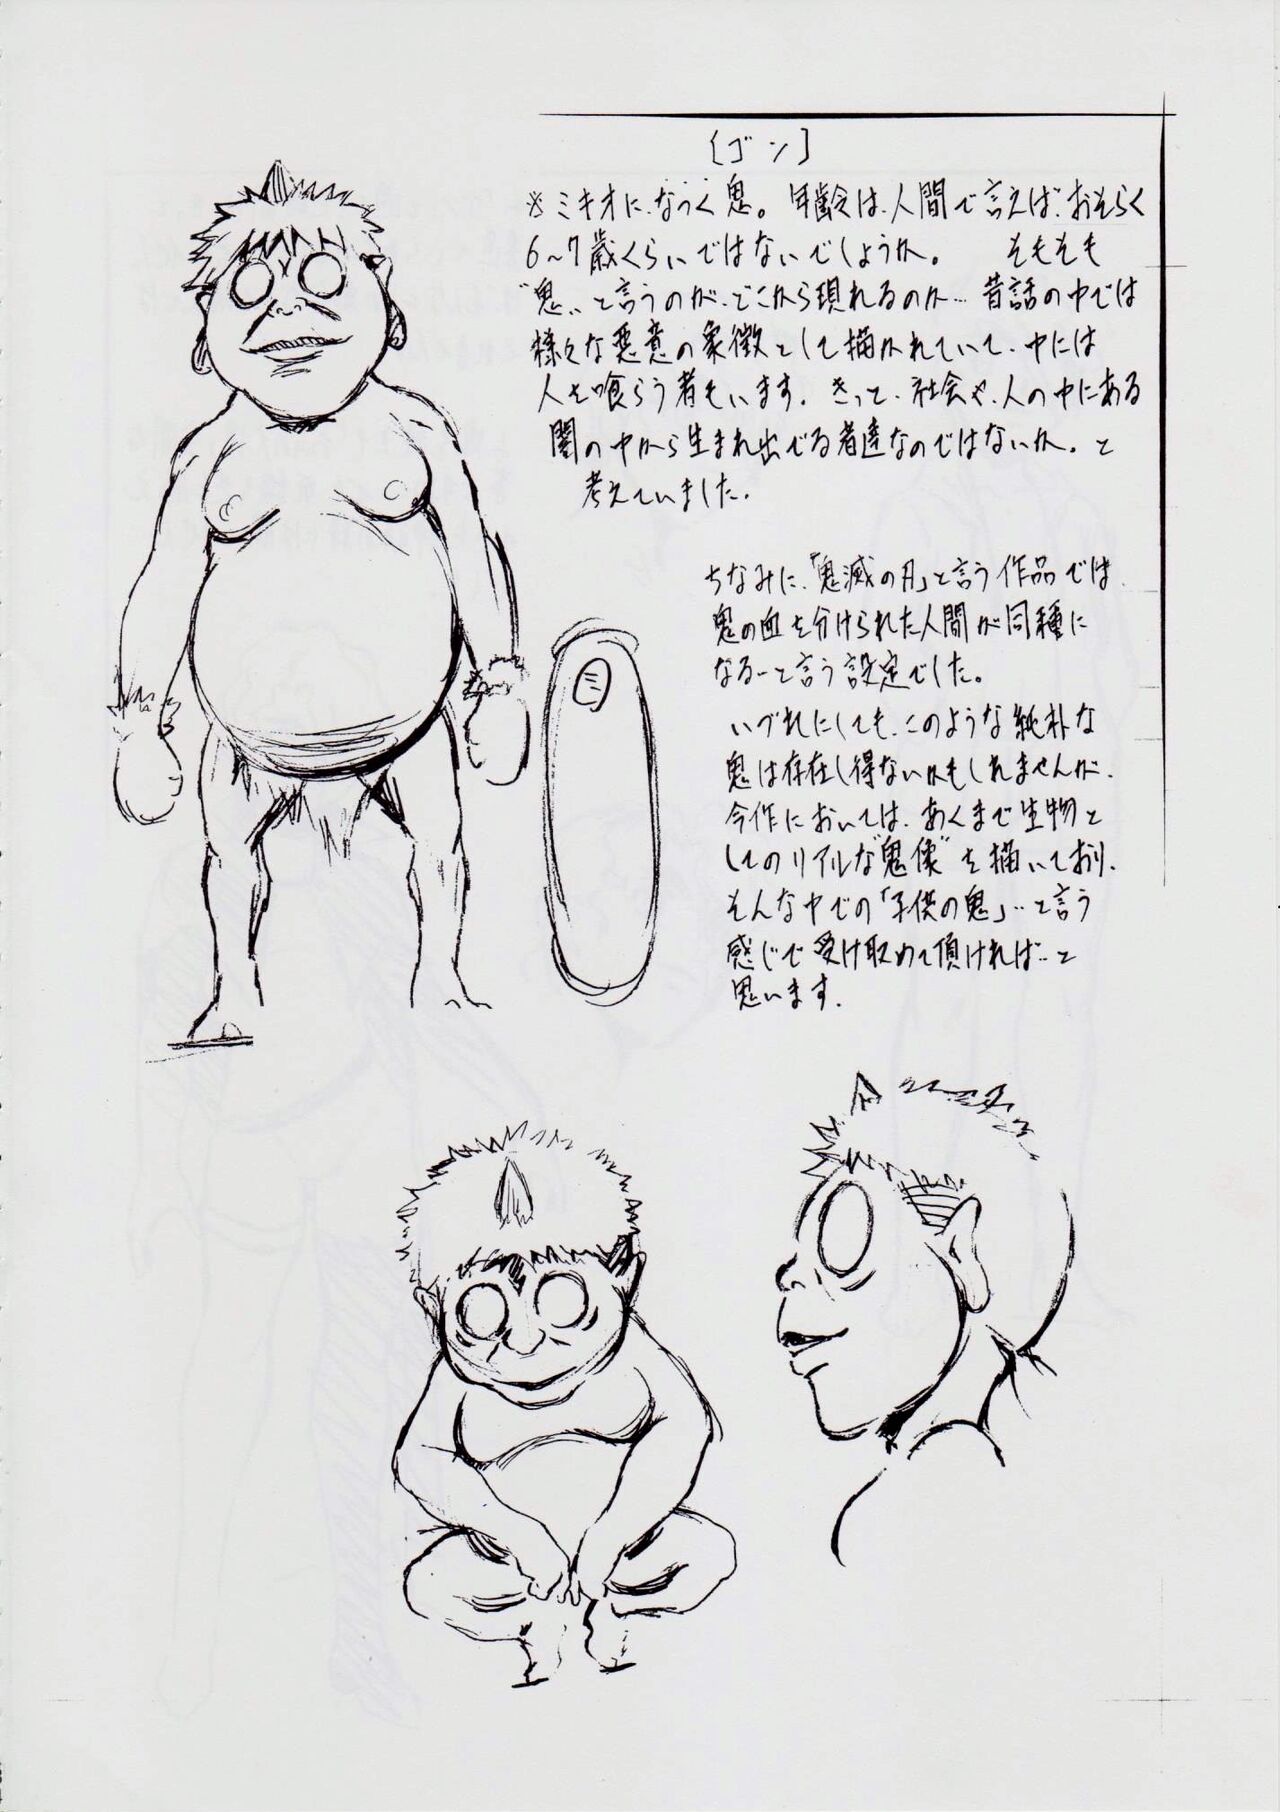 [ゴン]
※ミキオに、なつく鬼。年齢は、人間で言えば、おそらく
6〜7歳くらいではないでしょうか。 そもそも
"鬼"と言うのが、どこから現れるのか… 昔話の中では
様々な悪意の象徴として描かれていて、中には
人を喰らう者もいます。きっと、社会や、人の中にある
闇の中から生まれ出でる者達なのではないか。と
考えていました。
ちなみに、「鬼滅の刃」と言う作品では、
鬼の血を分けられた人間が同種に
なる…と言う設定でした。
いづれにしても、このような純朴な
鬼は存在し得ないかもしれませんが、
今作においては、あくまで生物と
してのリアルな"鬼像"を描いており、
そんな中での「子供の鬼」…と言う
感じで受け取めて頂ければ…と
思います。
ミ